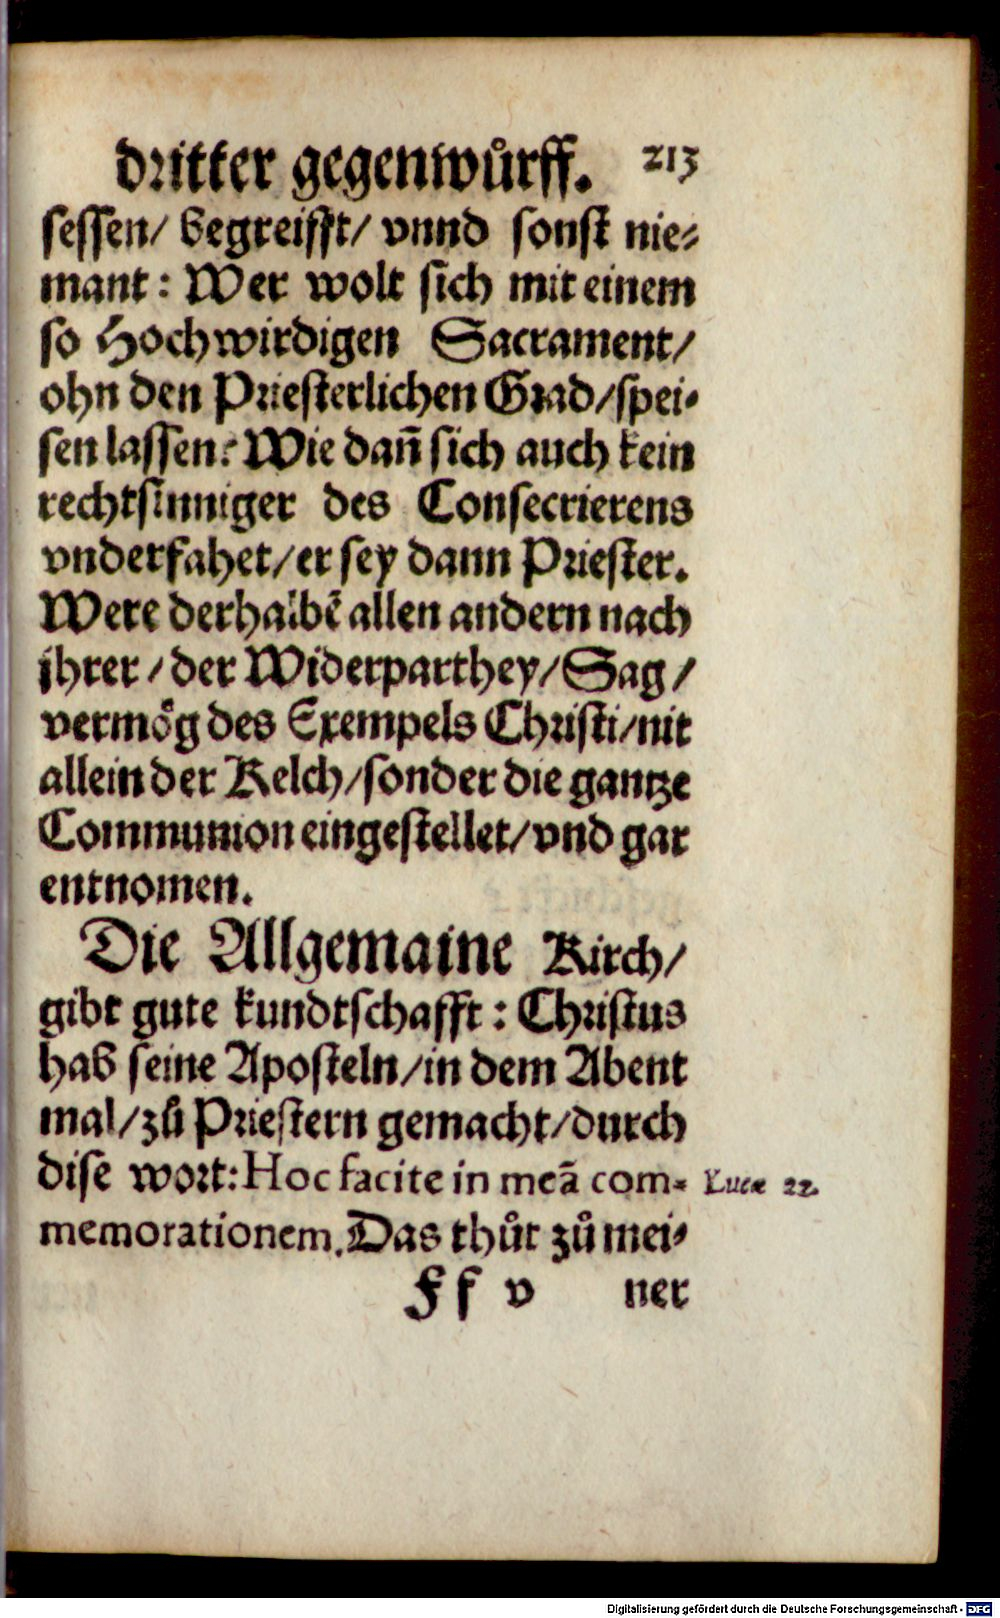 dritter gegenwuͤrff. 213
sessen/ begreifft/ vnnd sonst nie-
mant: Wer wolt sich mit einem
so Hochwirdigen Sacrament/
ohn den Priesterlichen Grad/spei-
sen lassen? Wie dañ sich auch kein
rechtsinniger des Consecrierens
vnderfahet/er sey dann Priester.
Were derhalbē allen andern nach
jhrer/der Widerparthey/Sag/
vermoͤg des Exempels Christi/nit
allein der Kelch/sonder die gantze
Communion eingestellet/vnd gar
entnomen.
Die Allgemaine Kirch/
gibt gute kundtschafft: Christus
hab seine Aposteln/in dem Abent
mal/zů Priestern gemacht/durch
dise wort: Hoc facite in meā com- Lucæ 22.
memorationem. Das thůt zů mei-
Ff v ner
Digitalisierung gefördert durch die Deutsche Forschungsgemeinschaft - DFG